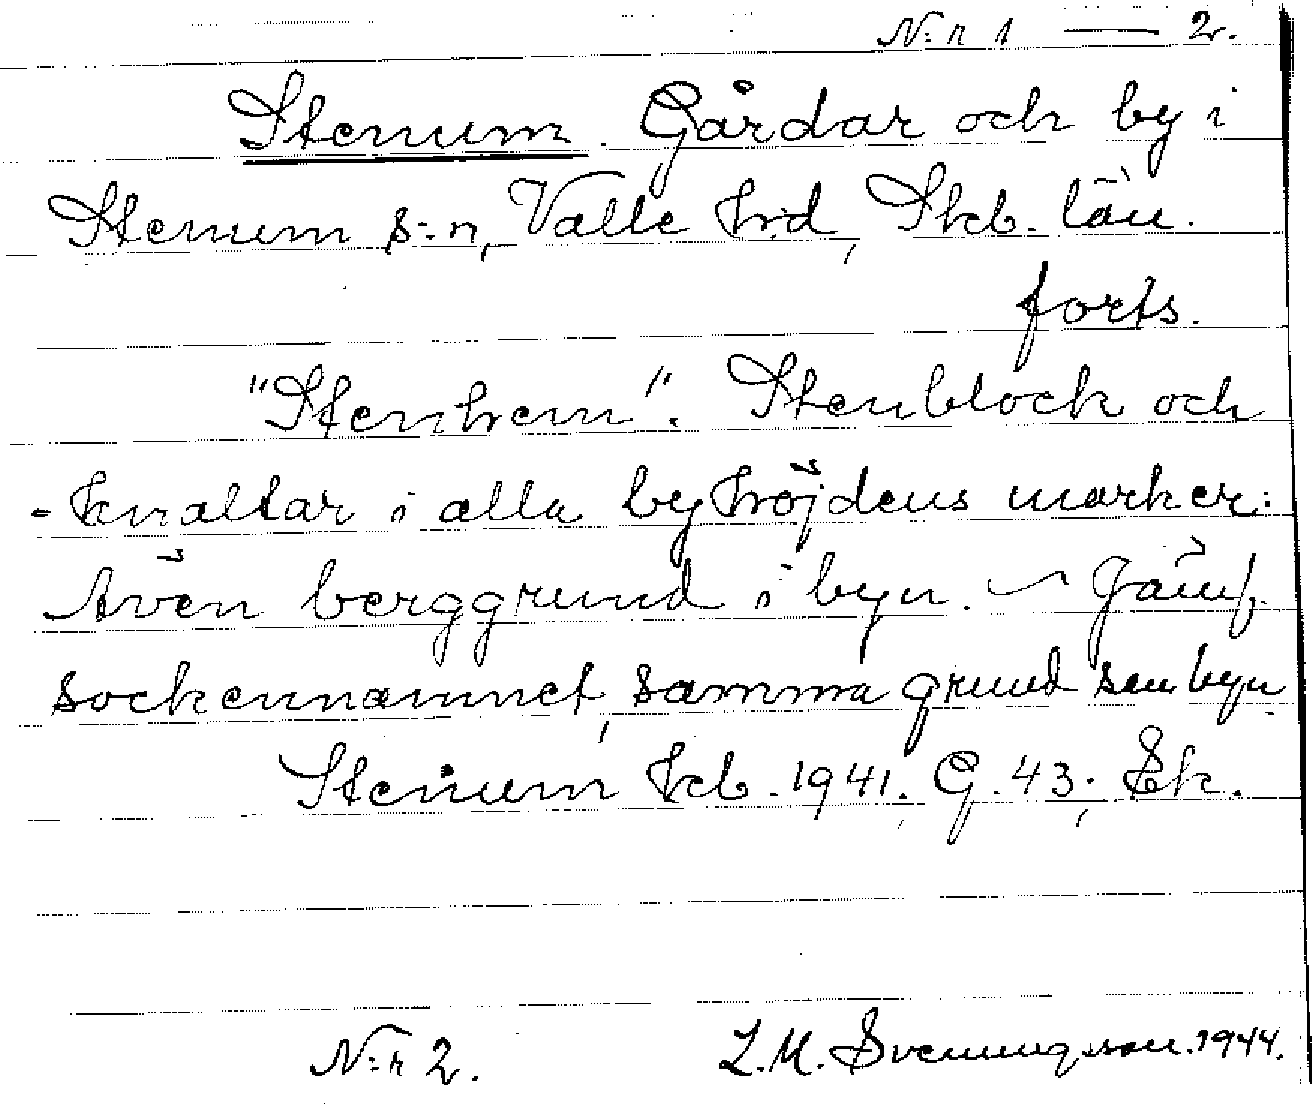 N:r 1 — 2.
Stenum. Gårdar och by i
Stenum s:n, Valle hrd, Skb. län.
forts.
"Stenhem". Stenblock och
-knaltar i alla byhöjdens marker:
Även berggrund i byn. — Jämf.
sockennamnet, samma grund som byn.
Stenum kb. 1941. G. 43; Ek.
N:r 2.
L. M. Svenungsson. 1944.